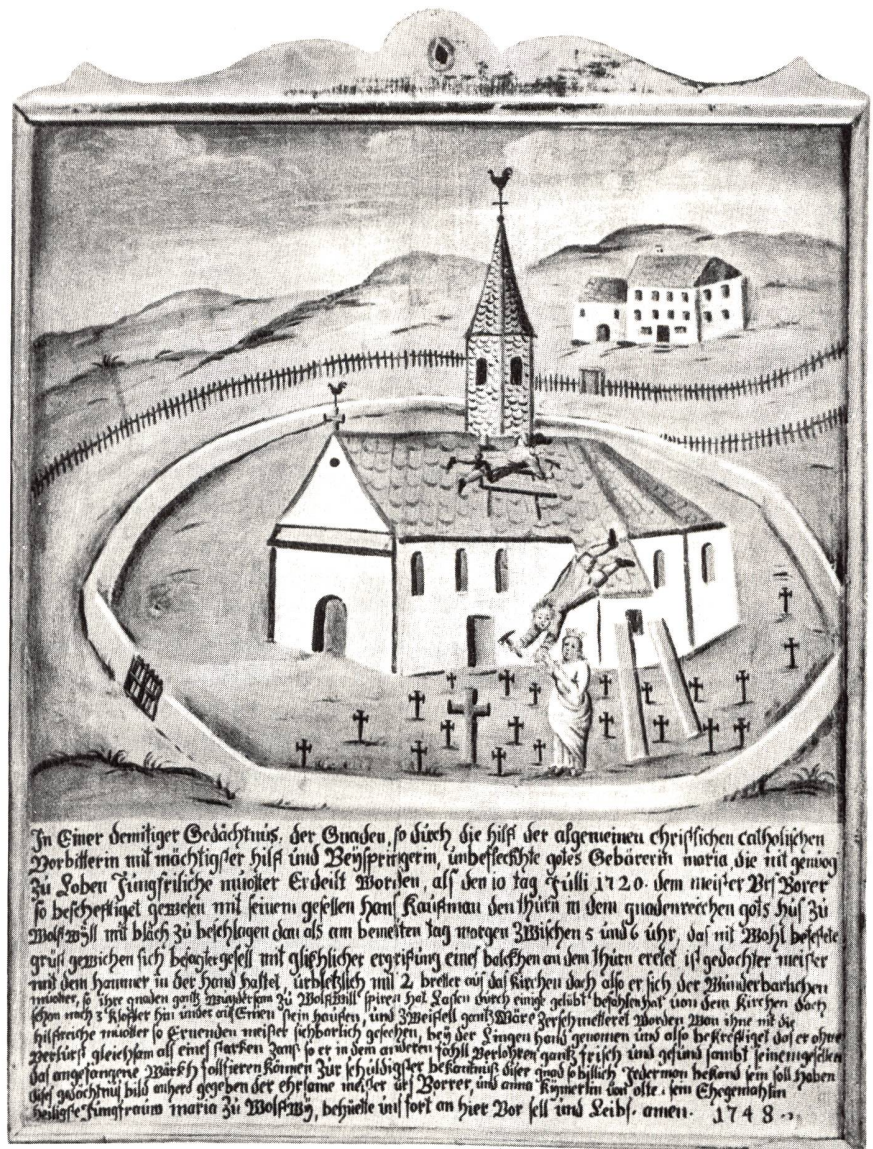 In Einer demitiger Gedächtnus, der Gnaden, so durch die hilff der algemeinen christlichen catholischen
Vorbitterin mit mächtigster hilff und Beyspringerin, unbefleckhte gotes Gebärerin maria die nit genuog
Zu Loben Jungfriliche muotter Erdeilt Worden, als den 10 tag Julli 1720. dem meister Urs Borer
so bescheftiget gewesen mit seinem gesellen Hans Kaufman den thurn in dem gnadenreichen gots hus zu
Wolfwyll mit bläch zu beschlagen dan als am bemelten tag morgen Zwischen 5 und 6 uhr, das nit Wohl befestete
grüst gewichen sich besagter gesell mit gliehlicher ergrifung eines balckhen an dem thurn eretet ist gedachter meister
mit dem hammer, in der hand haltet, urbletzlich mit 2 bretter auf das kirchen dach also er sich der Wunderbarlichen
muotter, so ihre gnaden gantz Wundersam zu Wolfwill spiren hat Lassen durch einige gelübt befohlen hat von dem kirchen dach
schon noch 3 klaffter hin under auf Einen stein haufen, und Zweifell gantz Wäre Zerschmetteret Worden Wan ihne nit die
hilfreiche muotter so Eruenden meister sichbarlich gesechen, bey der Lingen hand genomen und also bekreftiget das er ohne
Verlurst gleichsam als eines starken Zans so er in dem anderen fahll Verlohren gantz frisch und gesund sambt seinem gesellen
das angefangene Wärkh follfieren können Zur schuldigster bekantnuß diser gnad so billich Jederman bekand sein soll Haben
dises gedächtnus bild anherd gegeben der ehrsame meister urs Borrer, und anna kymerlin von olte : sein Ehegemahlin
heiligste Jungfrauw maria Zu Wolfwy, behuette uns fort an hier Vor sell und Leibs. amen. 1748